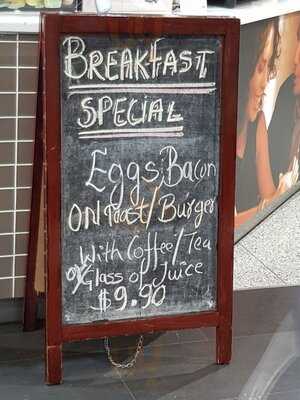 BREAKFAST
SPECIAL
Eggs Bacon
ON Toast/Burger
With Coffee/Tea
or Glass of Juice
$9.90